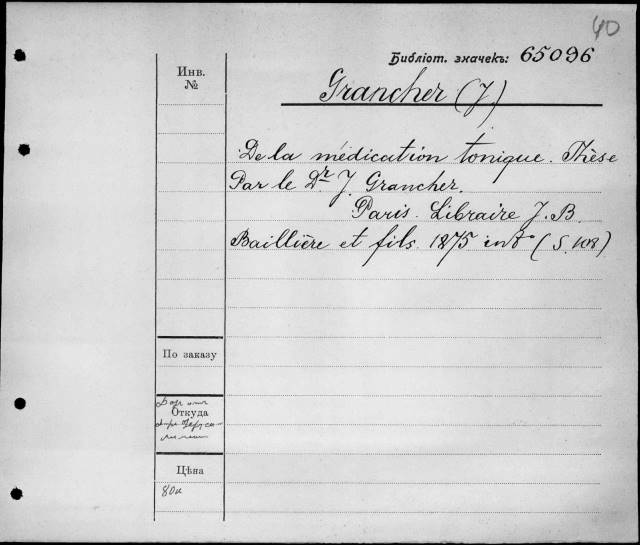 40
Библіот. значекъ: 65096
Инв.
№
Grancher (J)
De la médication tonique. Thèse
Par le Dr J. Grancher.
Paris. Libraire J. B.
Baillière et fils. 1875 in 8° (S. 108)
По заказу
Откуда
Цѣна
80к